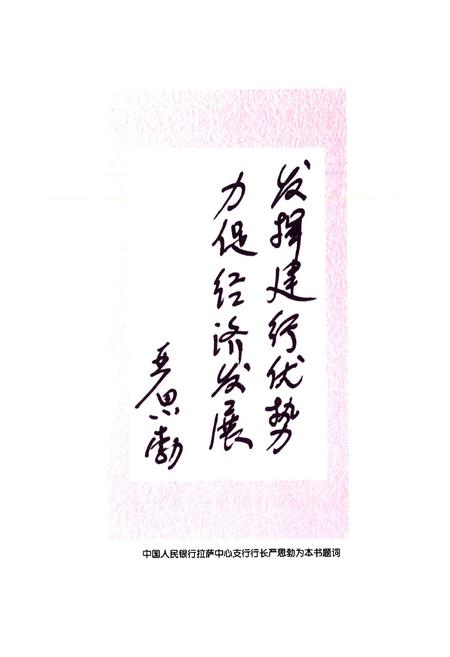 发挥建行优势
力促经济发展
严思勃
中国人民银行拉萨中心支行行长严思勃为本书题词